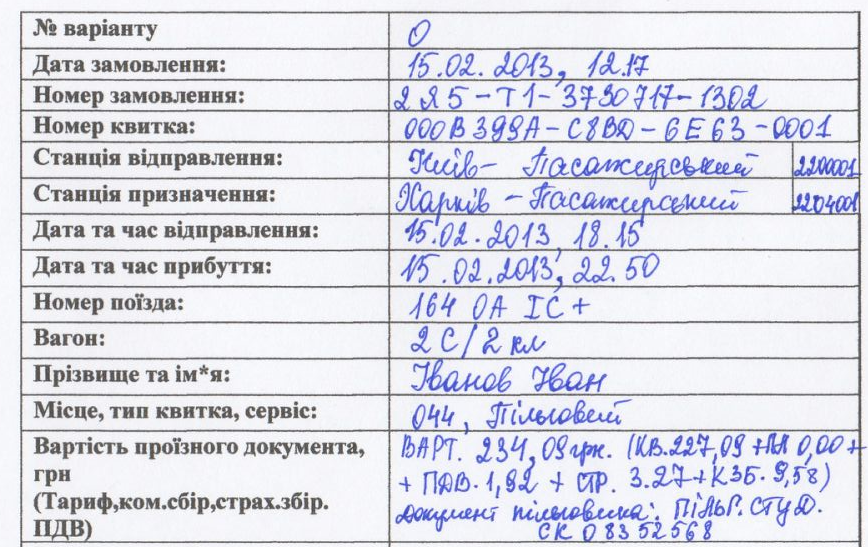 № варіанту 0
Дата замовлення: 15.02.2013, 12.17
Номер замовлення: 2Я5-Т1-3730717-1302
Номер квитка: 000В399А-С8ВD-6Е63-0001
Станція відправлення: Київ-Пасажирський 2200001
Станція призначення: Харків-Пасажирський 2204001
Дата та час відправлення: 15.02.2013, 18.15
Дата та час прибуття: 15.02.2013, 22.50
Номер поїзда: 164 ОА ІС+
Вагон: 2С/2 кл
Прізвище та ім*я: Іванов Іван
Місце, тип квитка, сервіс: 044, Пільговий
Вартість проїзного документа, ВАРТ. 234,09грн. (КВ.227,09 +ПЛ 0,00+
грн + ПДВ.1,92 + СТР. 3.27+КЗБ.9,58)
(Тариф,ком.сбір,страх.збір. документ пільговика: ПІЛЬГ. СТУД.
ПДВ) СК 08352568